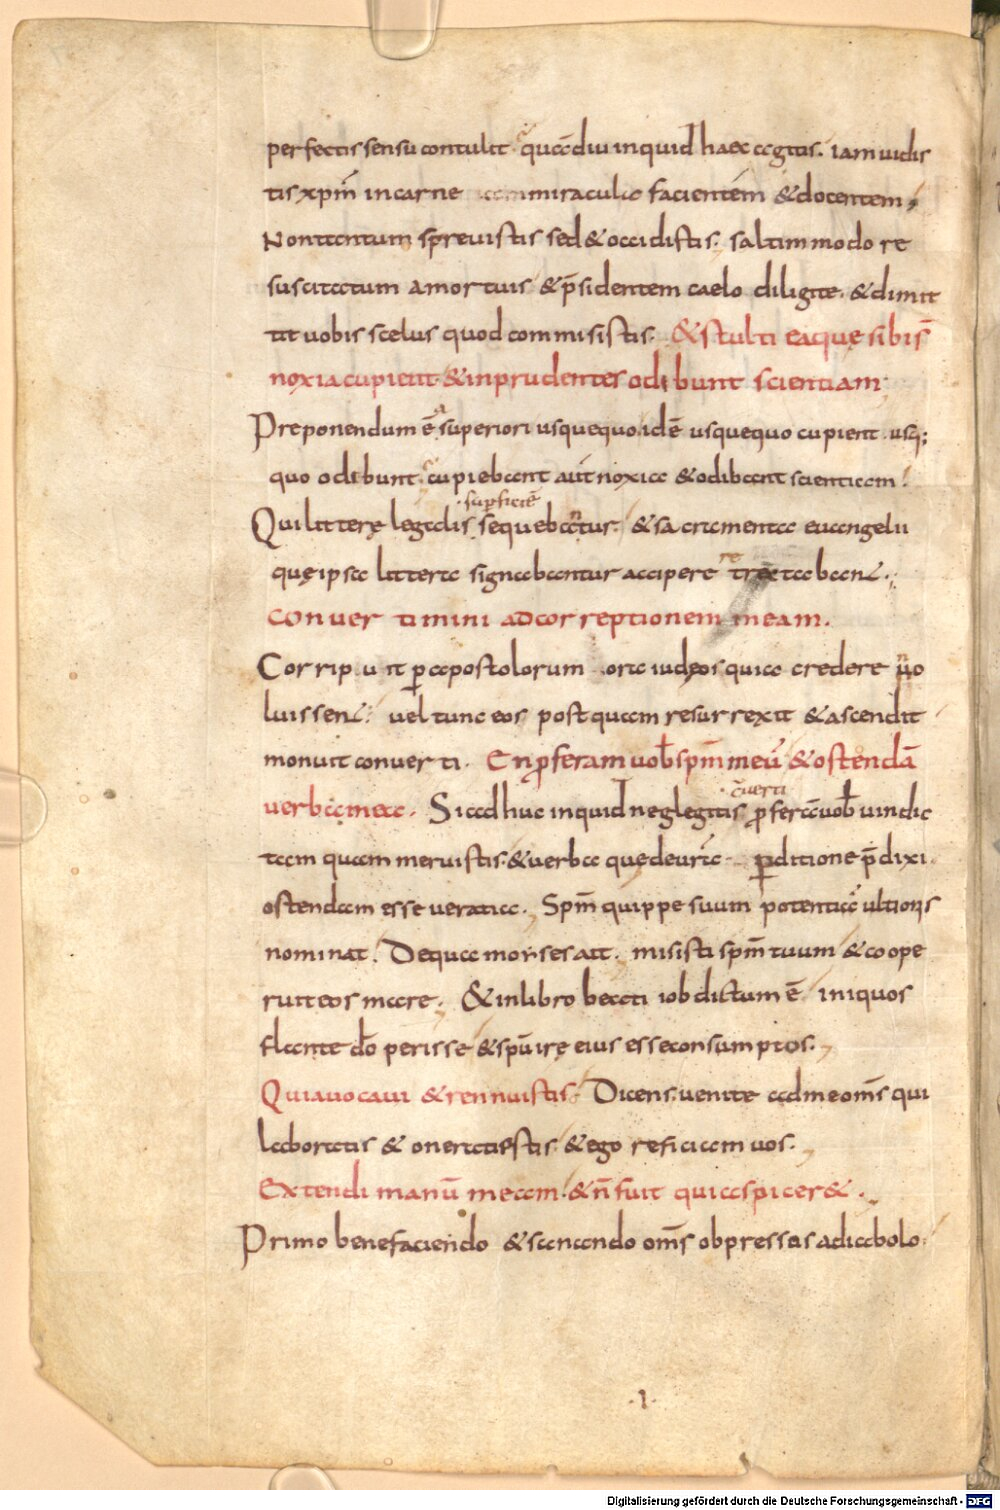 perfectis sensu contulit. quādiu inquid haec agitis. iam uidis
tis xp̄m in carne miracula facientem & docentem;
Non tantum spreuistis sed & occidistis. saltim modo re
suscitatum a mortuis & p̄sidentem caelo diligite. & dimit
tit uobis scelus quod commisistis. & stulti ea quę sibi s̄
noxia cupient & inprudentes odibunt scientiam;
Preponendum ē a superiori usquequo. id ē usquequo cupient. usq;
quo odibunt. cupiebant aut̄ noxia & odibant scientiam.
superficiē
Qui litterę legalis sequebantur & sacramenta euangelii
quę ipsa littera signabantur accipere retractabant.
Conuertimini ad correptionem meam.
Corripuit p apostolorum ora iudęos quia credere n̄ uo
luissent. uel tunc eos postquam resurrexit & ascendit
monuit conuerti. En p̱feram uob̄ spm̄ meū & ostendā
c̄uerti
uerba mea. Si adhuc inquid neglegitis p̱ferā uob̄ uindic
tam quam meruistis. & uerba quę de ur̄a p̱ditione p̄dixi
ostendam esse ueratia. Spm̄ quippe suum potentiā ultionis
nominat. De qua moyses ait. misisti spm̄ tuum & coope
ruit eos mare. & in libro beati iob dictum ē iniquos
flante dō perisse & spū irę eius esse consumptos.
Quia uocaui & rennuistis. Dicens. uenite ad me oms̄ qui
laboratis & onerati estis & ego reficiam uos.
Extendi manū meam. & n̄ fuit qui aspiceret.
Primo benefaciendo & sanando oms̄ obpressos a diabolo.
.I.
Digitalisierung gefördert durch die Deutsche Forschungsgemeinschaft - DFG